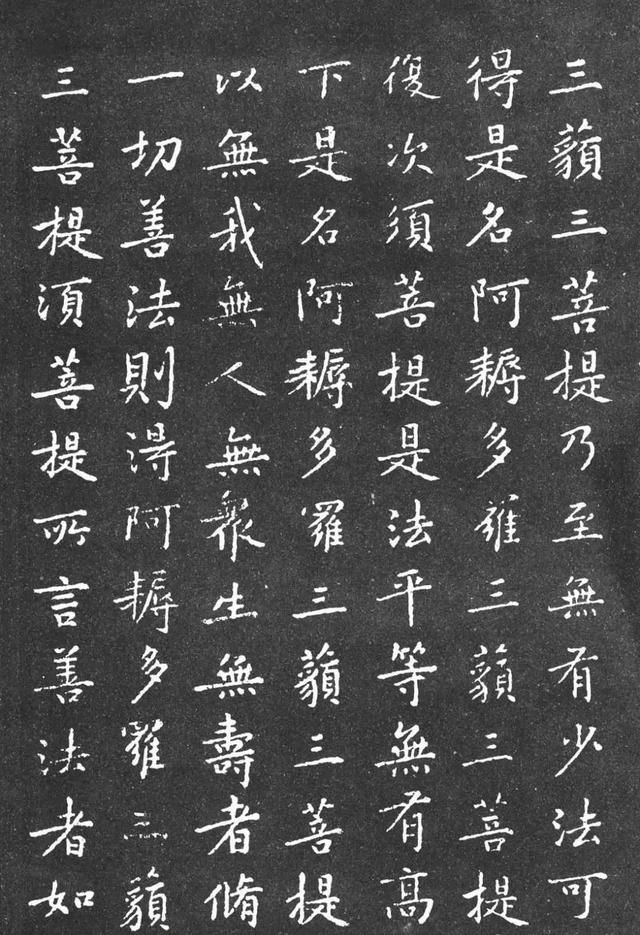 三藐三菩提乃至無有少法可
得是名阿耨多羅三藐三菩提
復次須菩提是法平等無有高
下是名阿耨多羅三藐三菩提
以無我無人無眾生無壽者脩
一切善法則得阿耨多羅三藐
三菩提須菩提所言善法者如